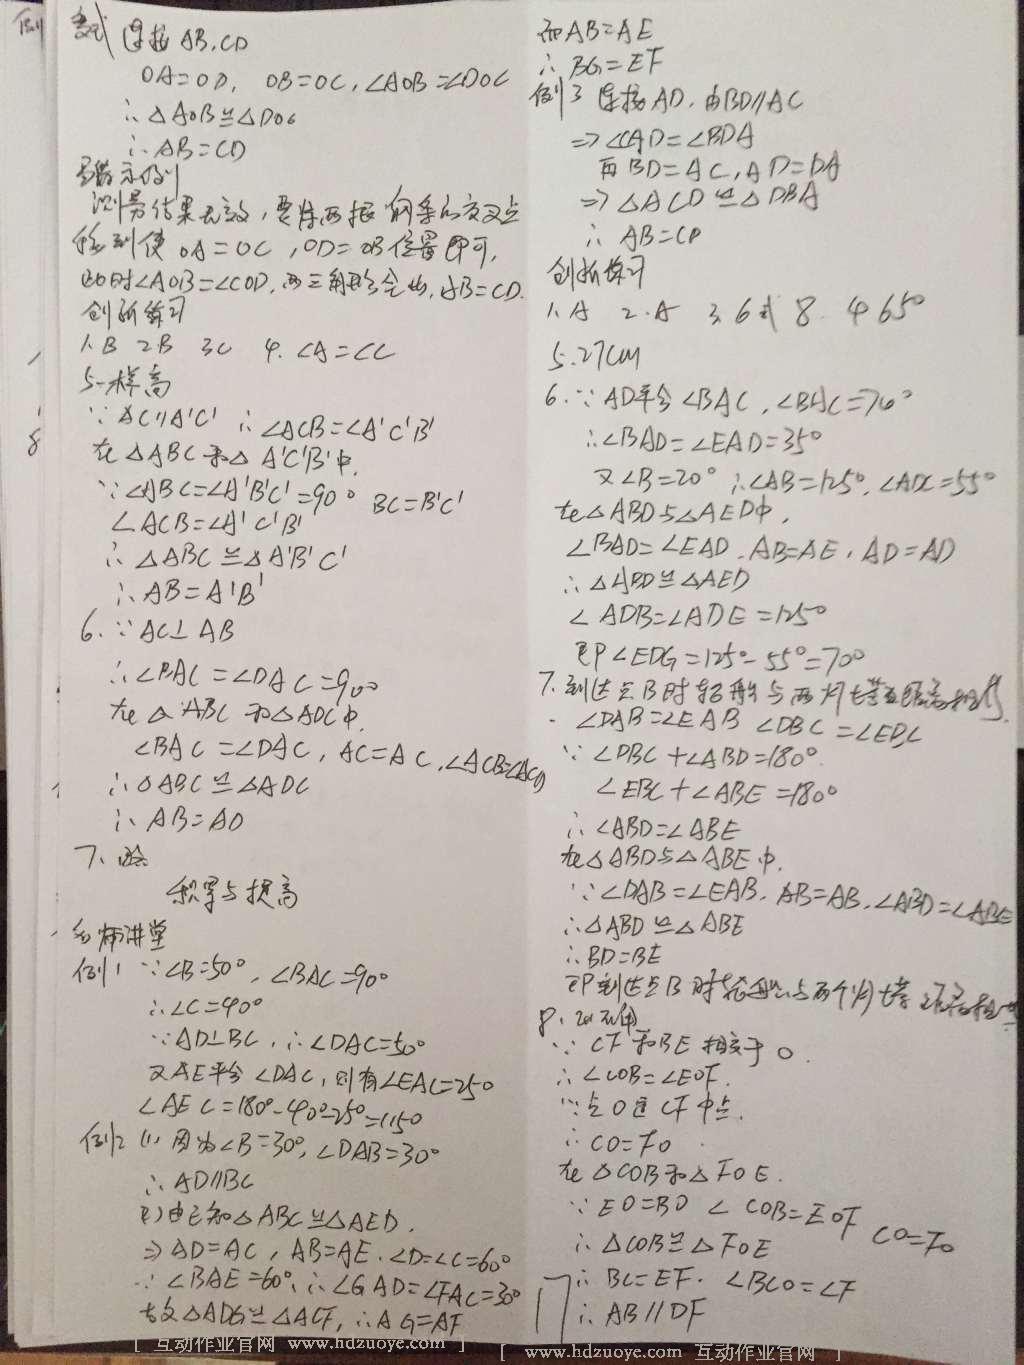 例
变式 连接AB,CD
OA=OD, OB=OC,∠AOB=∠DOC
∴△AOB≌△DOC
∴AB=CD
示例
测量结果无效,要将两根钢条的交叉点
移到使OA=OC,OD=OB位置即可,
此时∠AOB=∠COD,两三角形全等,AB=CD.
创新练习
1.B 2B 3C 4.∠A=∠C
5一样高
∵AC∥A'C' ∴∠ACB=∠A'C'B'
在△ABC和△A'C'B'中,
∵∠ABC=∠A'B'C'=90° BC=B'C'
∠ACB=∠A'C'B'
∴△ABC≌△A'B'C'
∴AB=A'B'
6.∵AC⊥AB
∴∠BAC=∠DAC=90°
在△ABC和△ADC中
∠BAC=∠DAC,AC=AC,∠ACB=∠ACD
∴△ABC≌△ADC
∴AB=AD
7.略
积累与提高
名师讲堂
例1 ∵∠B=50°,∠BAC=90°
∴∠C=40°
∵AD⊥BC,∴∠DAC=50°
又AE平分∠DAC,则有∠EAC=25°
∠AEC=180°-40°-25°=115°
例2 (1)因为∠B=30°,∠DAB=30°
∴AD∥BC
(2)由已知△ABC≌△AED.
⇒AD=AC,AB=AE.∠D=∠C=60°
∵∠BAE=60°,∴∠GAD=∠FAC=30°
故△ADG≌△ACF,∴AG=AF
而AB=AE
∴BG=EF
例3 连接AD,由BD∥AC
⇒∠CAD=∠BDA
再BD=AC,AD=DA
⇒△ACD≌△DBA
∴AB=CD
创新练习
1.A 2.A 3.6或8. 4 65°
5.27cm
6.∵AD平分∠BAC,∠BAC=70°
∴∠BAD=∠EAD=35°
又∠B=20°∴∠AB=125°,∠ADC=55°
在△ABD与△AED中,
∠BAD=∠EAD.AB=AE,AD=AD
∴△ABD≌△AED
∠ADB=∠ADE=125°
即∠EDG=125°-55°=70°
7.到达点B时轮船与两灯塔距离相等.
∠DAB=∠EAB ∠DBC=∠EBC
∵∠DBC+∠ABD=180°.
∠EBC+∠ABE=180°
∴∠ABD=∠ABE
在△ABD与△ABE中,
∵∠DAB=∠EAB.AB=AB.∠ABD=∠ABE
∴△ABD≌△ABE
∴BD=BE
即到达点B时轮船与两个灯塔距离相等
8.证明
∵CF和BE相交于O.
∴∠COB=∠EOF.
∵点O是CF中点.
∴CO=FO
在△COB和△FOE.
∵EO=BO ∠COB=EOF CO=FO
∴△COB≌△FOE
∴BC=EF.∠BCO=∠F
∴AB∥DF
[ 互动作业官网 www.hdzuoye.com ]
[ www.hdzuoye.com 互动作业官网 ]